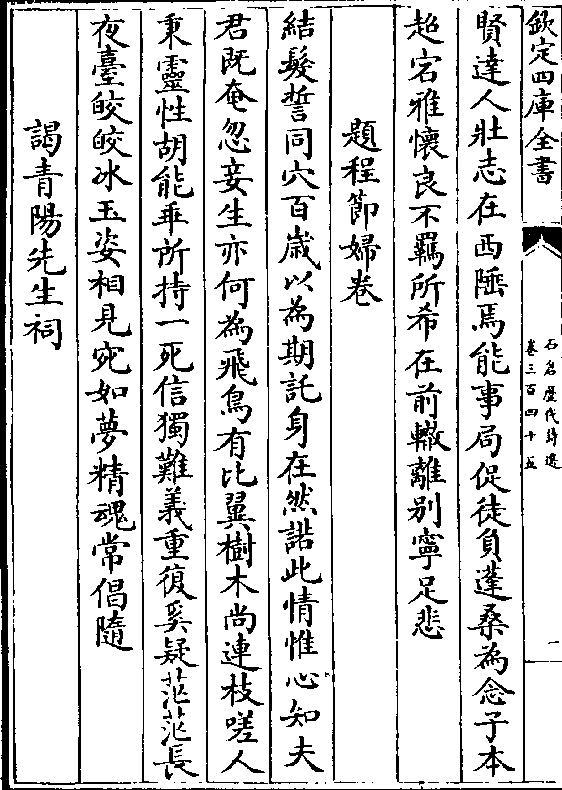 欽定四庫全書
石倉歷代詩選
卷三百四十五
二
賢達人壯志在西陲焉能事局促徒負蓬桑為念子本
超宕雅懷良不羈所希在前轍離别寧足悲
題程節婦卷
結髮誓同穴百歲以為期託身在然諾此情惟心知夫
君既奄忽妾生亦何為飛鳥有比翼樹木尚連枝嗟人
秉靈性胡能乖所持一死信獨難義重復奚疑茫茫長
夜臺皎皎冰玉姿相見宛如夢精魂常倡隨
謁青陽先生祠